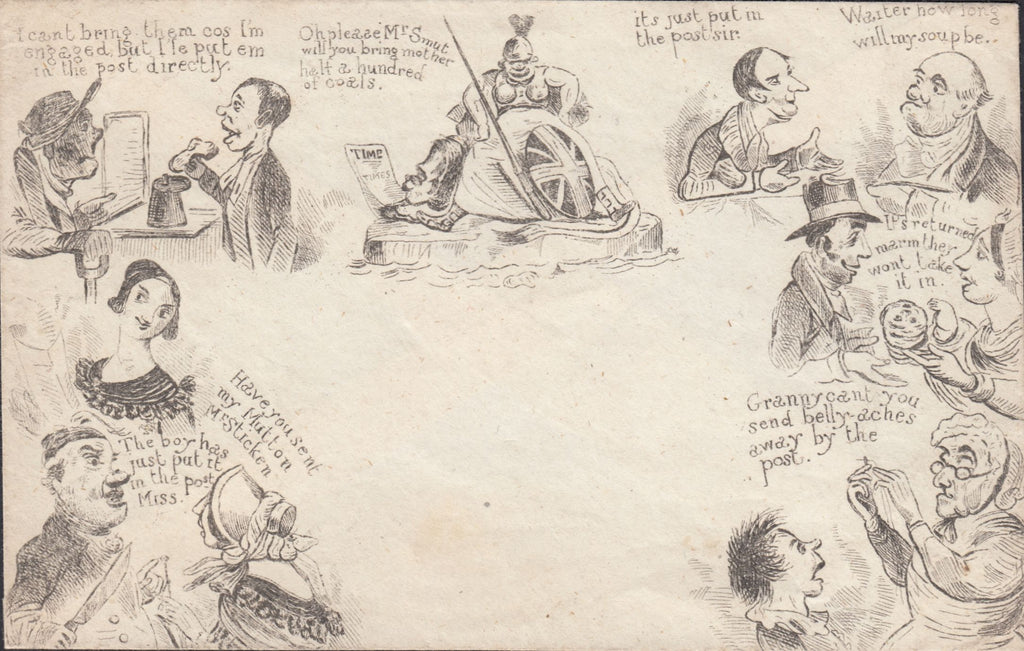 I cant bring them cos I'm
engaged, but I'le put em
in the post directly.
Oh please Mr Smut
will you bring mother
half a hundred
of coals.
TIME
TIMES
its just put in
the post sir.
Waiter how long
will my soup be..
It's returned
marm they
wont take
it in.
Granny cant you
send belly-aches
away by the
post.
Have you sent
my Mutton
Mr Sticken
The boy has
just put it
in the post
Miss.